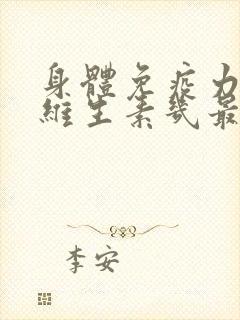 身體免疫力
維生素幾最
李安